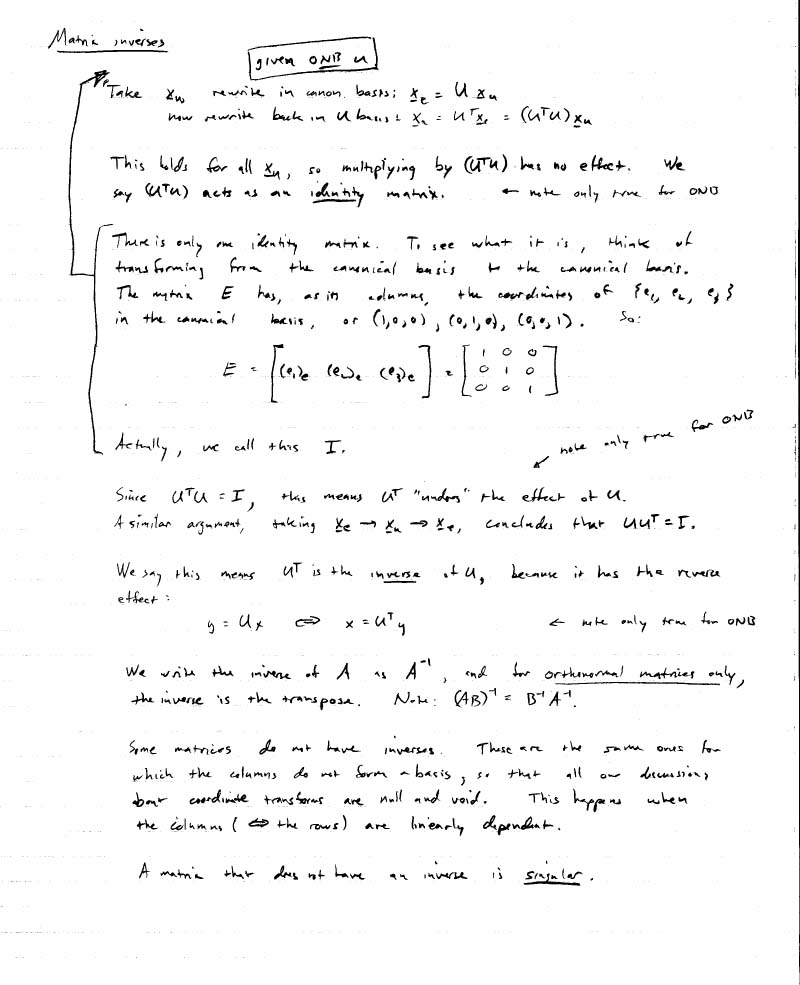 Matrix inverses
given ONB U
Take x_u, rewrite in canon. basis: x_e = U x_u
now rewrite back in U basis: x_u = Uᵀx_e = (UᵀU) x_u
This holds for all x_u, so multiplying by (UᵀU) has no effect. We
say (UᵀU) acts as an identity matrix. ← note only true for ONB
There is only one identity matrix. To see what it is, think of
transforming from the canonical basis to the canonical basis.
The matrix E has, as its columns, the coordinates of {e₁, e₂, e₃}
in the canonical basis, or (1,0,0), (0,1,0), (0,0,1). So:
E = [(e₁)_e (e₂)_e (e₃)_e] = [1 0 0
0 1 0
0 0 1]
Actually, we call this I.
note only true for ONB
Since UᵀU = I, this means Uᵀ "undoes" the effect of U.
A similar argument, taking x_e → x_u → x_e, concludes that UUᵀ = I.
We say this means Uᵀ is the inverse of U, because it has the reverse
effect:
y = Ux ⇔ x = Uᵀy ← note only true for ONB
We write the inverse of A as A⁻¹, and for orthonormal matrices only,
the inverse is the transpose. Note: (AB)⁻¹ = B⁻¹A⁻¹.
Some matrices do not have inverses. These are the same ones for
which the columns do not form a basis, so that all our discussions
about coordinate transforms are null and void. This happens when
the columns (⇔ the rows) are linearly dependent.
A matrix that does not have an inverse is singular.